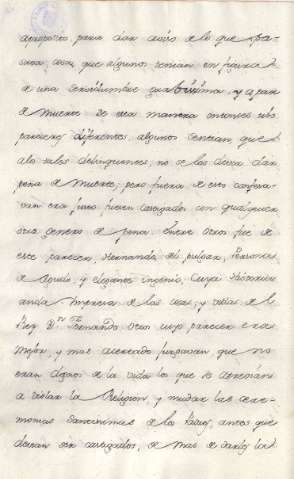 aproposito para dar aviso de lo que pa-
saria, assi, que algunos tenian en figura
de una servidumbre gravissima, y a par
de muerte. De esta manera entonces los
pareceres diferentes, algunos sentian, que
a los tales delinquentes, no se les devia dar
pena de muerte; pero fuera de esto confesa-
van era justo fuesen castigados con qualquier
otro genero de pena. Entre otros fue de
este parecer, Hernando del Pulgar, Persona
de agudo, y elegante ingenio, cuya Historia
anda impresa de las cosas, y vidas de el
Rey Dn Fernando. Otros cuyo parecer era
mejor, y mas acertado juzgavan, que no
eran dignos de la vida los que se atrevian
a violar la Religion, y mudar las cere-
monias santissimas de los Padres, antes que
devian ser castigados, de mas de darles